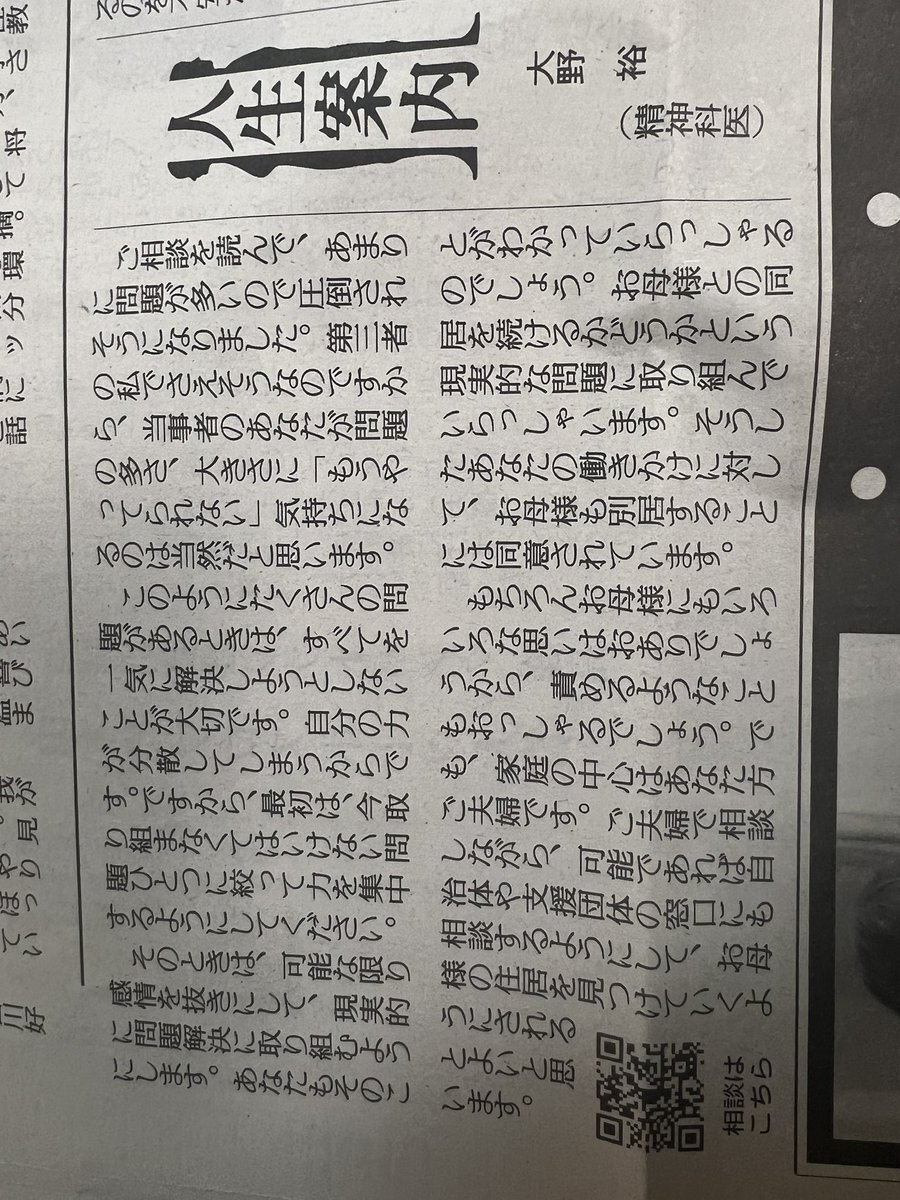 人生案内
大野 裕
(精神科医)
ご相談を読んで、あまり
に問題が多いので圧倒され
そうになりました。第三者
の私でさえそうなのですか
ら、当事者のあなたが問題
の多さ、大きさに「もうや
ってられない」気持ちにな
るのは当然だと思います。
このようにたくさんの問
題があるときは、すべてを
一気に解決しようとしない
ことが大切です。自分の力
が分散してしまうからで
す。ですから、最初は、今取
り組まなくてはいけない問
題ひとつに絞って力を集中
するようにしてください。
そのときは、可能な限り
感情を抜きにして、現実的
に問題解決に取り組むよう
にします。あなたもそのこ
とがわかっていらっしゃる
のでしょう。お母様との同
居を続けるかどうかという
現実的な問題に取り組んで
いらっしゃいます。そうし
たあなたの働きかけに対し
て、お母様も別居すること
には同意されています。
もちろんお母様にもいろ
いろな思いはおありでしょ
うから、責めるようなこと
もおっしゃるでしょう。で
も、家庭の中心はあなた方
ご夫婦です。ご夫婦で相談
しながら、可能であれば自
治体や支援団体の窓口にも
相談するようにして、お母
様の住居を見つけていくよ
うにされる
とよいと思
います。
相談は
こちら